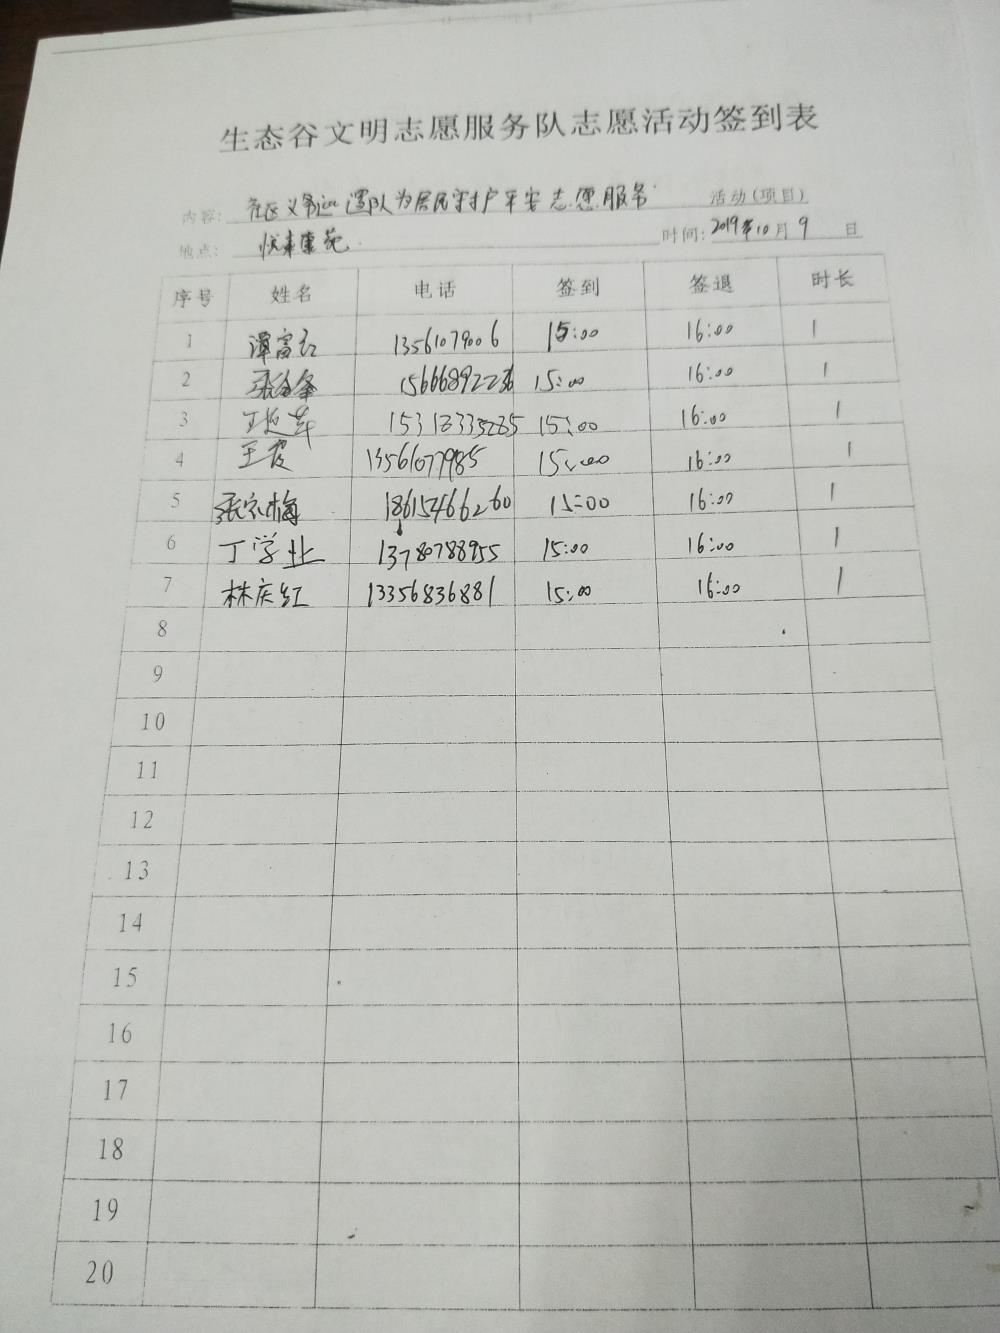 生态谷文明志愿服务队志愿活动签到表
内容: 社区义务巡逻队为居民守护平安志愿服务 活动(项目)
地点: 悦来康苑 时间: 2019年10月9日
序号 姓名 电话 签到 签退 时长
1 谭富 13561079006 15:00 16:00 1
2 张 15666892236 15:00 16:00 1
3 丁 15318335285 15:00 16:00 1
4 王霞 13561077985 15:00 16:00 1
5 张宗梅 18615466260 15:00 16:00 1
6 丁学业 13780788955 15:00 16:00 1
7 林庆红 13356836881 15:00 16:00 1
8
9
10
11
12
13
14
15
16
17
18
19
20